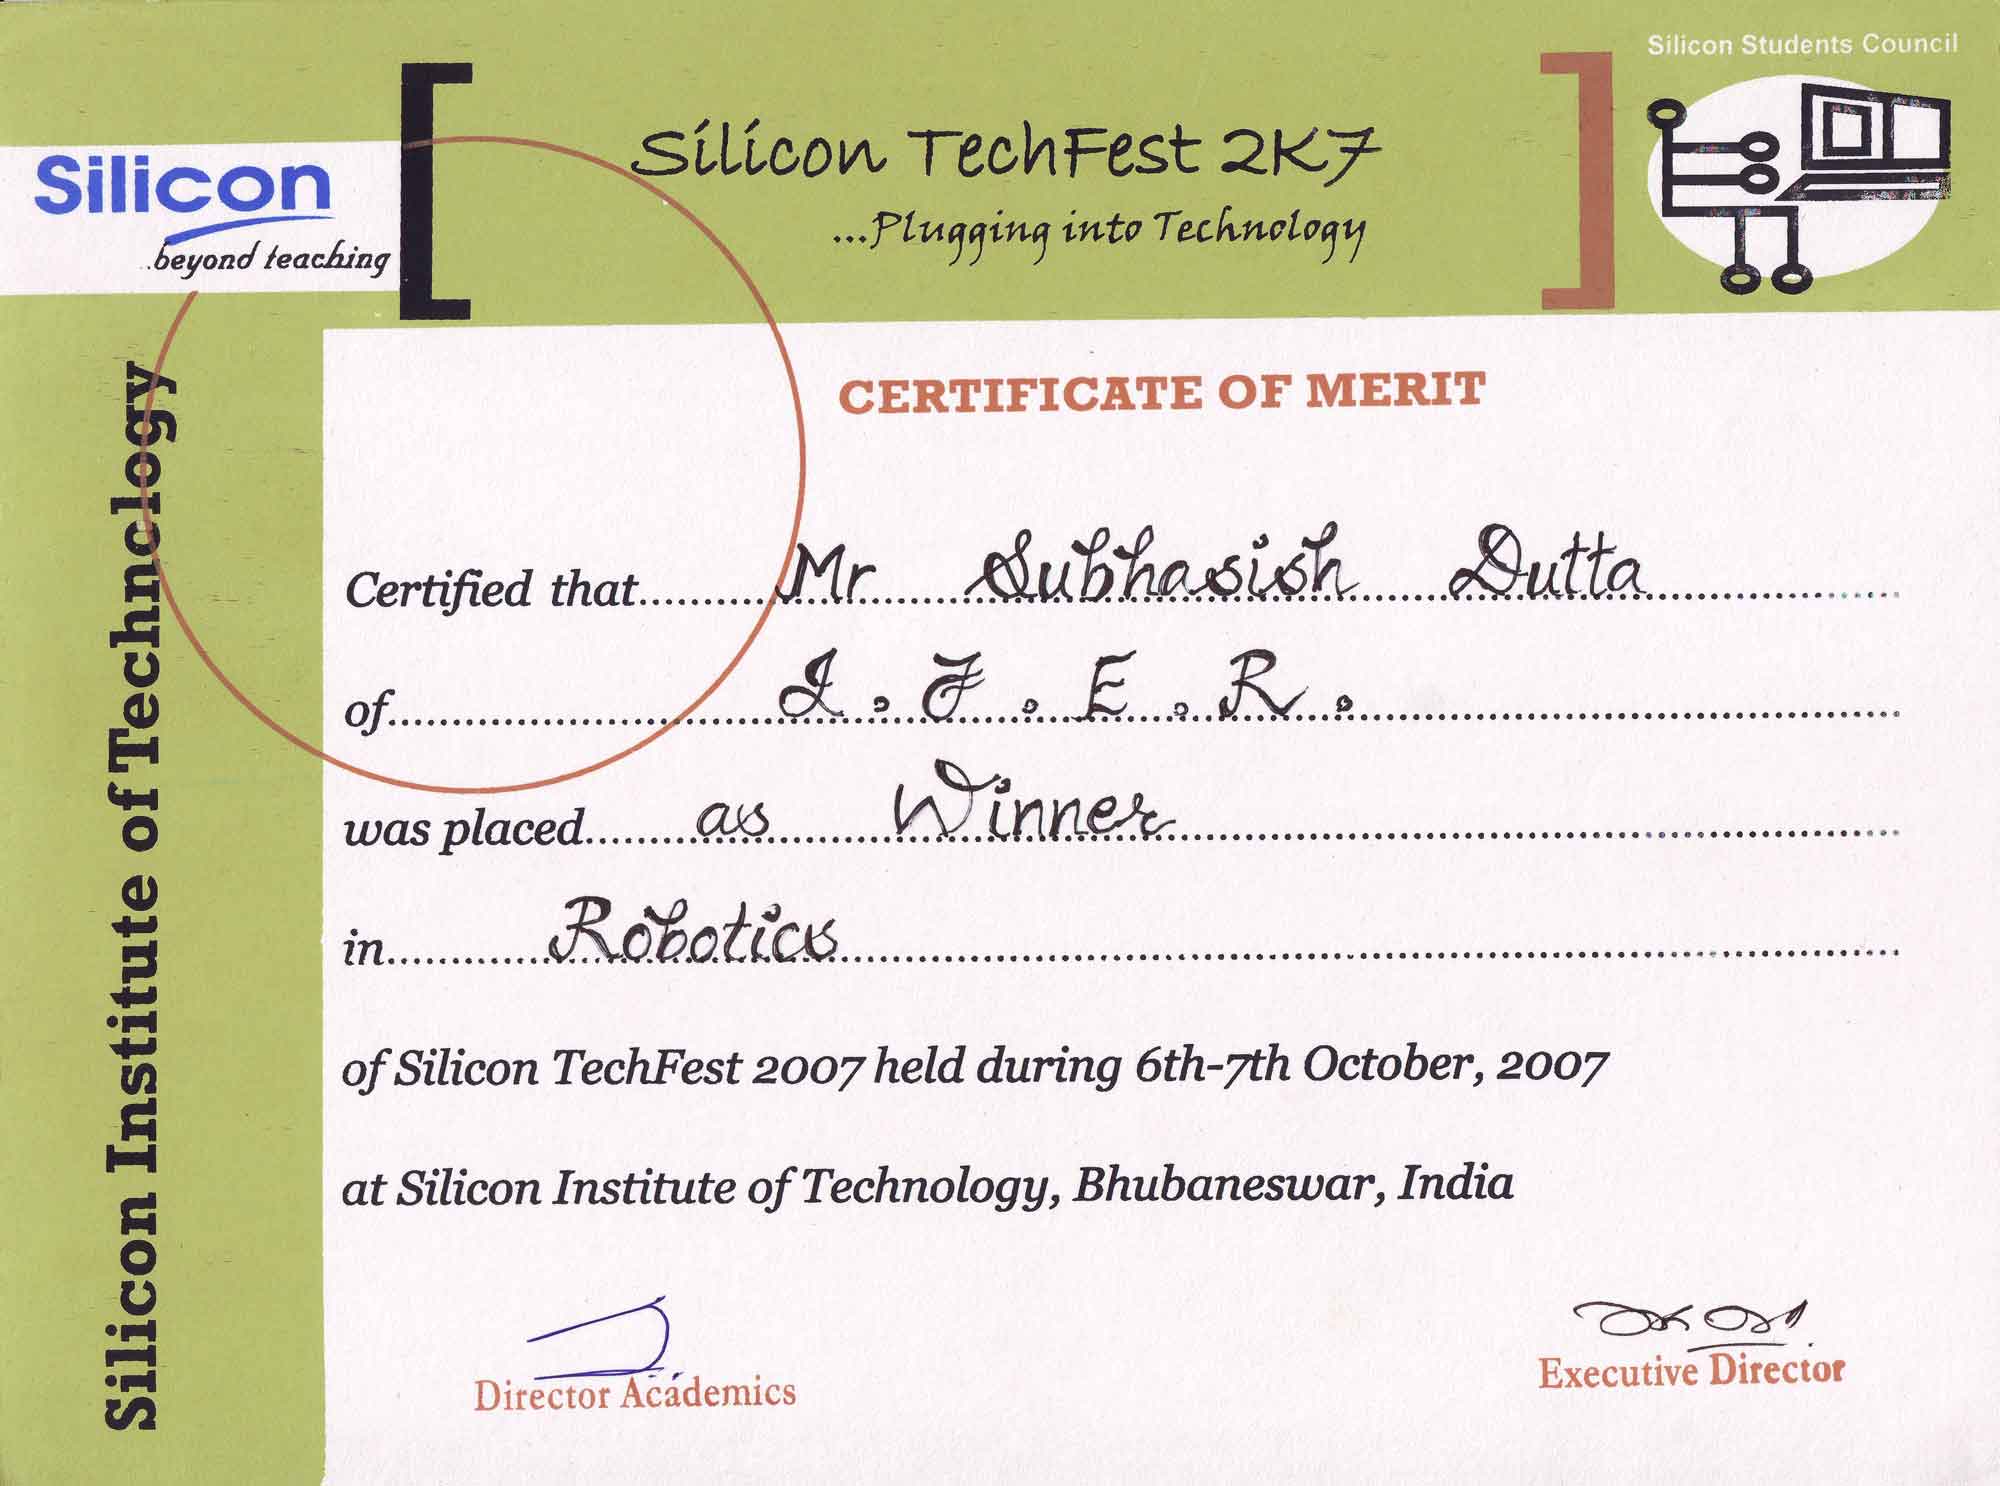 Silicon Students Council
Silicon
..beyond teaching
Silicon TechFest 2K7
...Plugging into Technology
Silicon Institute of Technology
CERTIFICATE OF MERIT
Certified that Mr Subhasish Dutta
of I.T.E.R.
was placed as Winner
in Robotics
of Silicon TechFest 2007 held during 6th-7th October, 2007
at Silicon Institute of Technology, Bhubaneswar, India
Director Academics
Executive Director